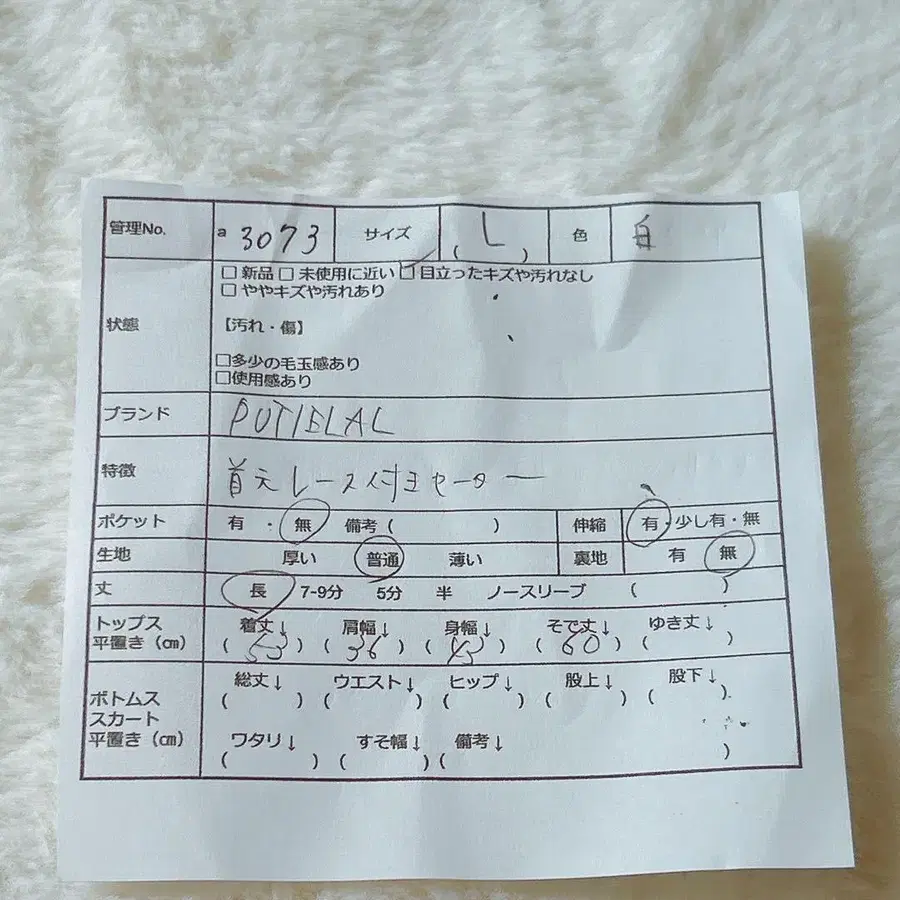 管理No. a 3073 サイズ ( L ) 色 白
状態 □ 新品 □ 未使用に近い □ 目立ったキズや汚れなし
□ ややキズや汚れあり
【汚れ・傷】
□多少の毛玉感あり
□使用感あり
ブランド PUTIELAL
特徴 首元レース付きセーター
ポケット 有 ・ 無 備考 ( ) 伸縮 有・少し有・無
生地 厚い 普通 薄い 裏地 有 無
丈 長 7-9分 5分 半 ノースリーブ ( )
トップス 着丈↓ 肩幅↓ 身幅↓ そで丈↓ ゆき丈↓
平置き（㎝） ( 53 ) ( 36 ) ( 43 ) ( 60 ) ( )
ボトムス 総丈↓ ウエスト↓ ヒップ↓ 股上↓ 股下↓
スカート ( ) ( ) ( ) ( ) ( )
平置き（㎝） ワタリ↓ すそ幅↓ 備考↓
( ) ( ) ( )